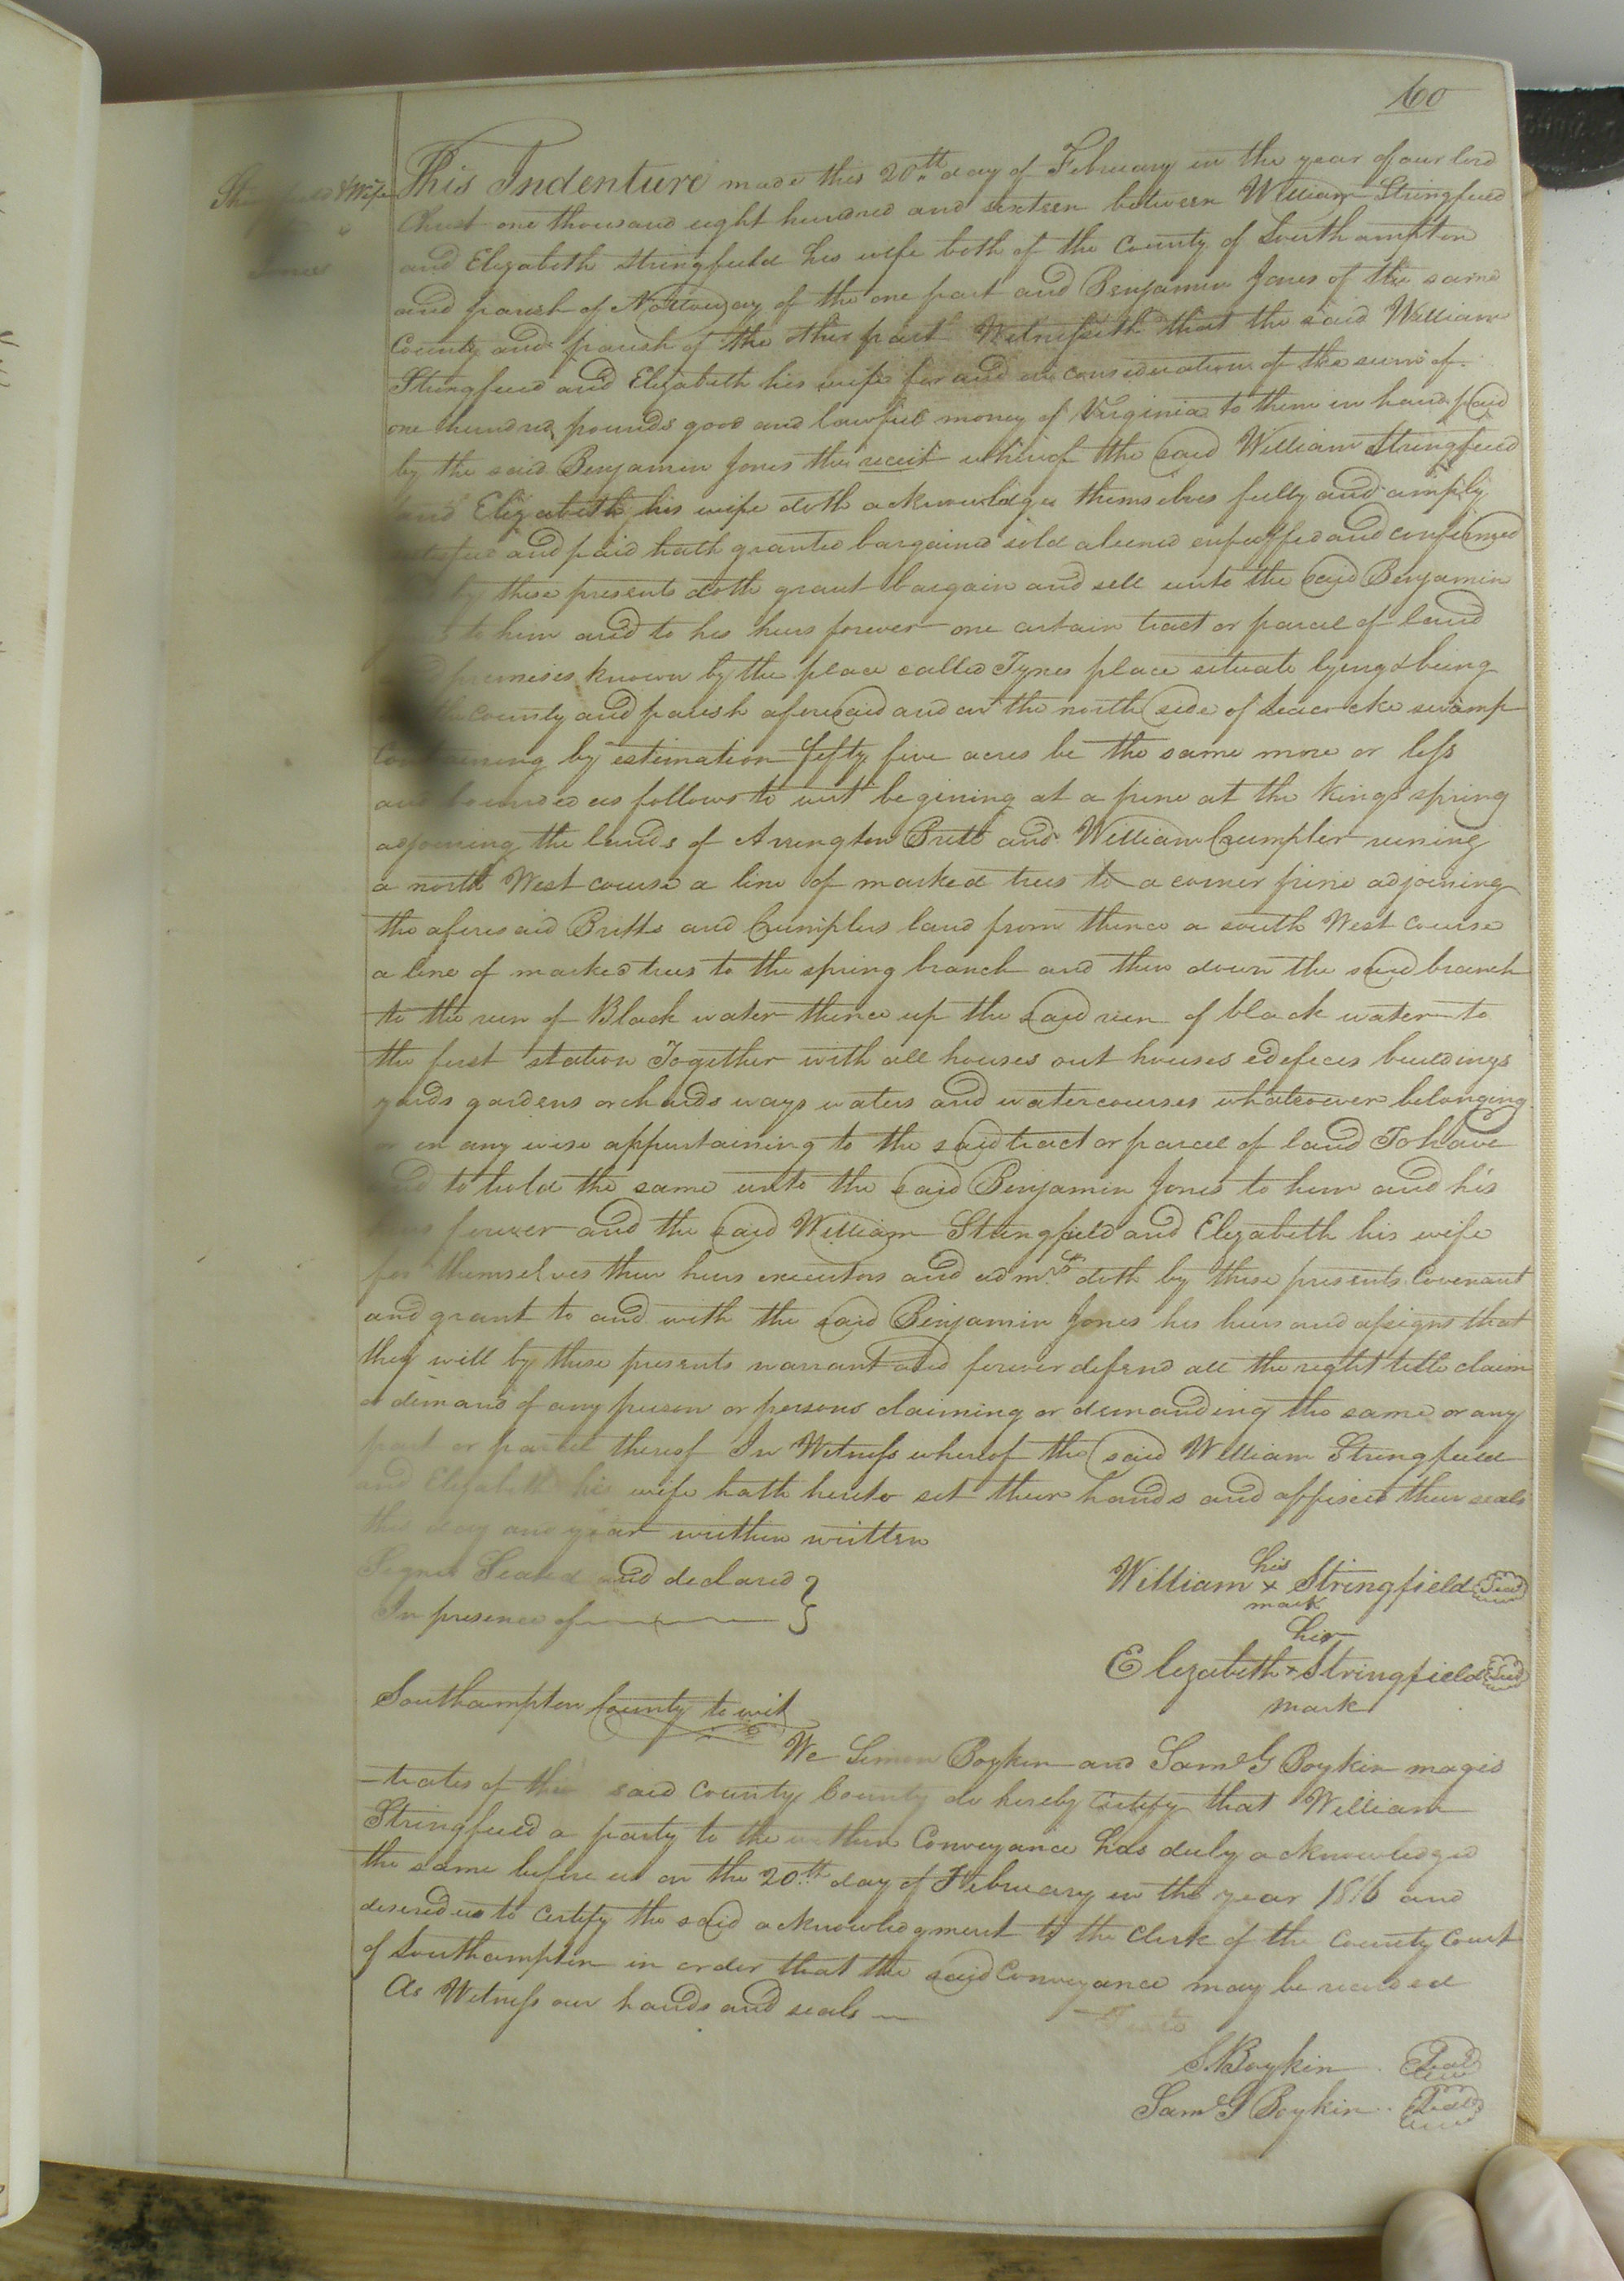 160
& Wife
Jones
This Indenture made this 20th day of February in the year of our lord
Christ one thousand eight hundred and sixteen between William Stringfield
and Elizabeth Stringfield his wife both of the County of Southampton
and parish of Nottoway of the one part and Benjamin Jones of the same
County and parish of the other part Witnesseth that the said William
Stringfield and Elizabeth his wife for and in consideration of the sum of
one hundred pounds good and lawfull money of Virginia to them in hand paid
by the said Benjamin Jones the receit whereof the said William Stringfield
and Elizabeth his wife doth acknowledges themselves fully and amply
and paid hath granted bargained sold aliened enfeoffed and confirmed
by these presents doth grant bargain and sell unto the said Benjamin
to him and to his heirs forever one certain tract or parcel of land
premises known by the place called Tynes place situate lying & being
the County and parish aforesaid and on the north side of Seacocke swamp
Containing by estimation fifty five acres be the same more or less
and bounded as follows to wit begining at a pine at the Kings spring
adjoining the lands of Arrington Britt and William Crumpler runing
a north West course a line of marked trees to a corner pine adjoining
the aforesaid Britts and Crumplers land from thence a south West course
a line of marked trees to the spring branch and then down the said branch
to the run of Black water thence up the said run of black water to
the first station Together with all houses out houses edefices buildings
yards gardens orchards ways waters and watercourses whatsoever belonging
or in any wise appertaining to the said tract or parcel of land To have
and to hold the same unto the said Benjamin Jones to him and his
heirs forever and the said William Stringfield and Elizabeth his wife
for themselves their heirs executors and adm.rs doth by these presents Covenant
and grant to and with the said Benjamin Jones his heirs and assigns that
they will by these presents warrant and forever defend all the right title claim
or demand of any person or persons claiming or demanding the same or any
part or parcel thereof In Witness whereof the said William Stringfield
and Elizabeth his wife hath hereto set their hands and affixed their seals
this day and year within written
Signed Sealed and declared }
In presence of }
his
William x Stringfield Seal
mark
her
Elizabeth x Stringfield Seal
mark
Southampton County to wit
We Simon Boykin and Saml G Boykin magis
-trates of the said County County do hereby Certify that William
Stringfield a party to the within Conveyance has duly acknowledged
the same before us on the 20th day of February in the year 1816 and
desired us to Certify the said acknowledgment to the Clerk of the County Court
of Southampton in order that the said Conveyance may be recorded
As Witness our hands and seals
S. Boykin Seal
Saml G Boykin Seal